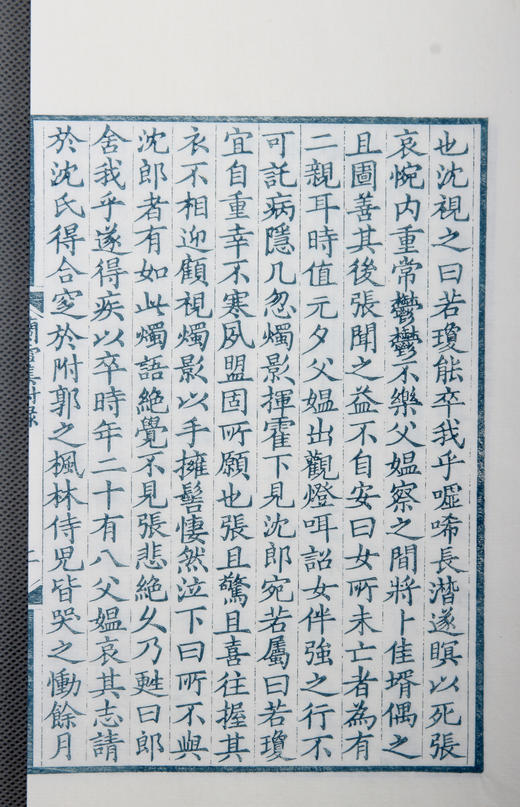 也沈視之曰若瓊能卒我乎噓唏長潸遂瞑以死張
哀惋内重常鬱鬱不樂父媼察之間將卜佳壻偶之
且圖善其後張聞之益不自安曰女所未亡者為有
二親耳時值元夕父媼出觀燈咡詔女伴強之行不
可託病隱几忽燭影揮霍下見沈郎宛若屬曰若瓊
宜自重幸不寒夙盟固所願也張且驚且喜往握其
衣不相迎顧視燭影以手擁髻悽然泣下曰所不與
沈郎者有如此燭語絶覺不見張悲絶久乃甦曰郎
舍我乎遂得疾以卒時年二十有八父媼哀其志請
於沈氏得合窆於附郭之楓林侍兒皆哭之慟餘月